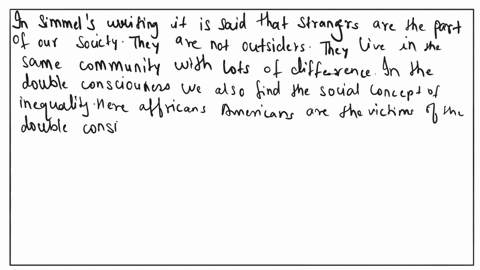 In Simmel's writing it is said that strangrs are the part
of our society. They are not outsiders. They live in the
same community with lots of difference. In the
double consciouness we also find the social concept of
inequality. Here affricans Americans are the victims of the
double consi